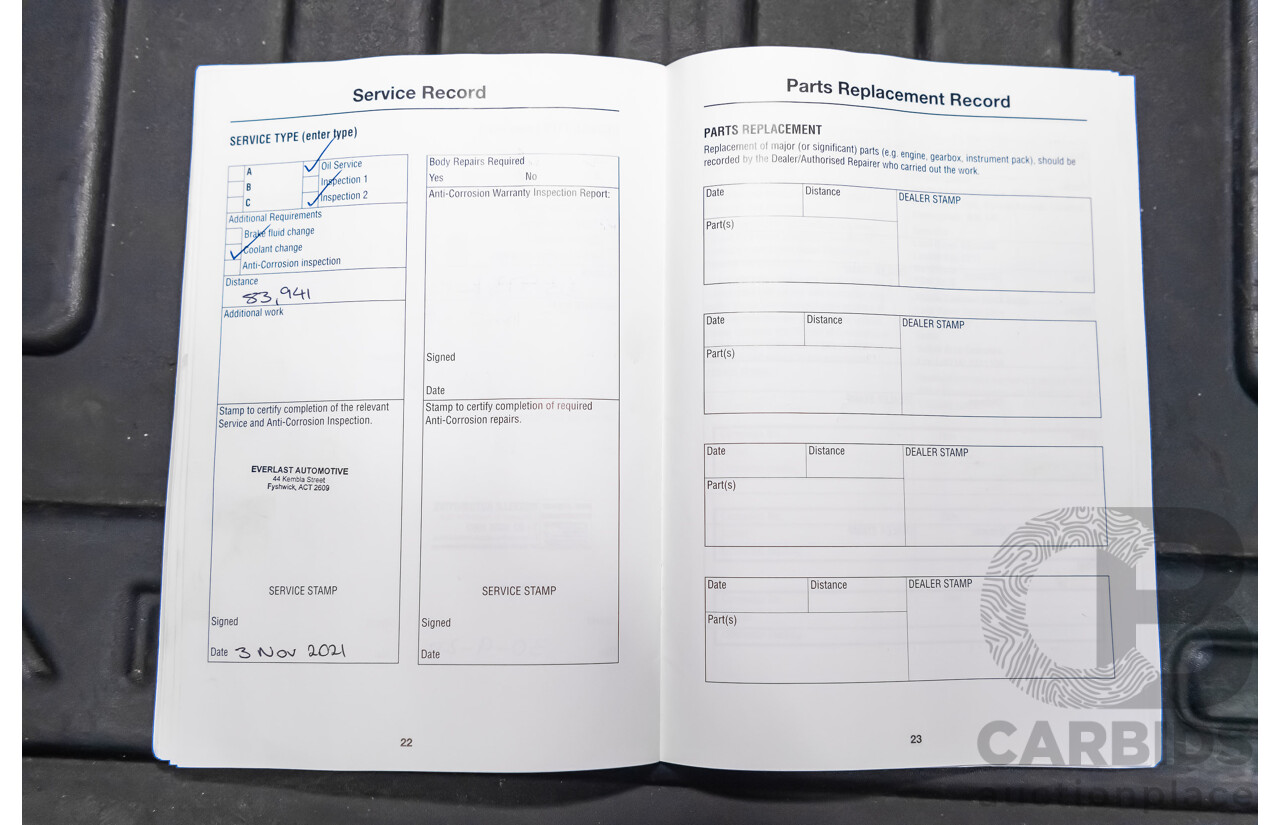 Service Record
SERVICE TYPE (enter type)
A
B
C
Oil Service
Inspection 1
Inspection 2
Additional Requirements
Brake fluid change
Coolant change
Anti-Corrosion inspection
Distance
83,941
Additional work
Stamp to certify completion of the relevant
Service and Anti-Corrosion Inspection.
EVERLAST AUTOMOTIVE
44 Kembla Street
Fyshwick, ACT 2609
SERVICE STAMP
Signed
Date 3 Nov 2021
Body Repairs Required
Yes No
Anti-Corrosion Warranty Inspection Report:
Signed
Date
Stamp to certify completion of required
Anti-Corrosion repairs.
SERVICE STAMP
Signed
Date
22
Parts Replacement Record
PARTS REPLACEMENT
Replacement of major (or significant) parts (e.g. engine, gearbox, instrument pack), should be
recorded by the Dealer/Authorised Repairer who carried out the work.
Date Distance DEALER STAMP
Part(s)
Date Distance DEALER STAMP
Part(s)
Date Distance DEALER STAMP
Part(s)
Date Distance DEALER STAMP
Part(s)
23
CARBIDS
auctionplace